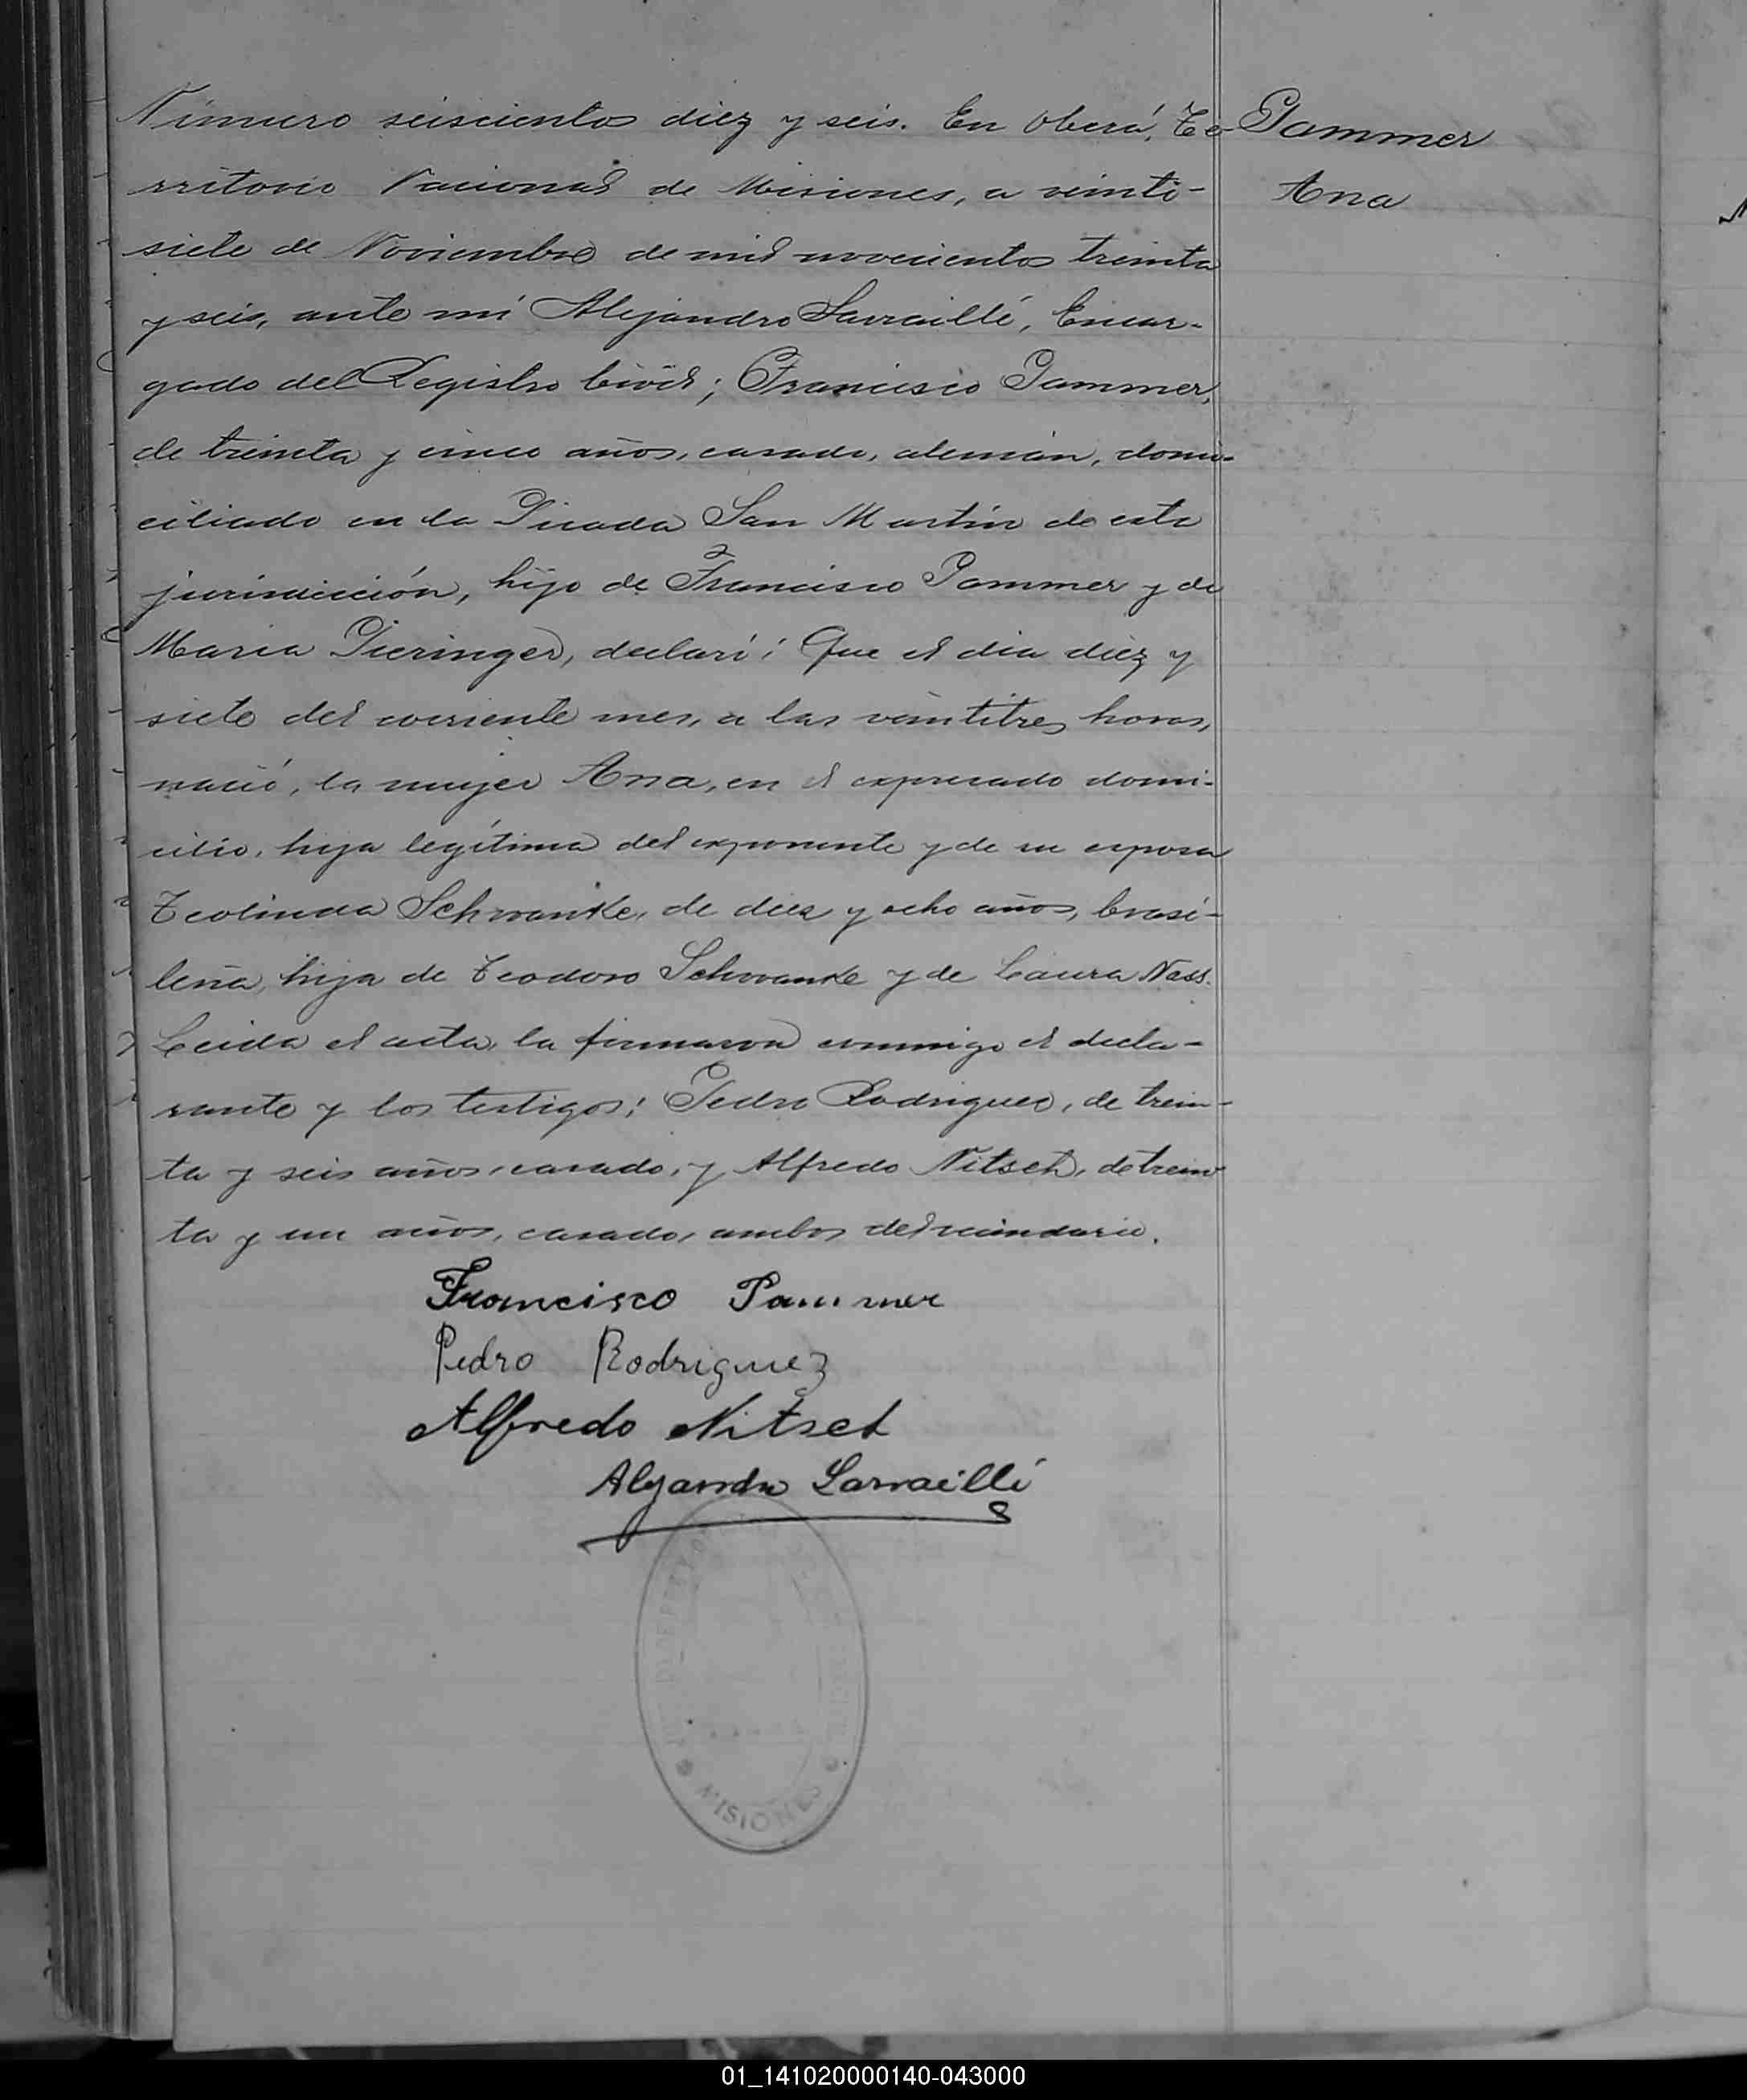 Número seiscientos diez y seis. En Oberá, Te-
rritorio Nacional de Misiones, a veinti-
siete de Noviembre de mil novecientos treinta
y seis, ante mí Alejandro Larraillé, Encar-
gado del Registro Civil; Francisco Pammer,
de treinta y cinco años, casado, alemán, domi-
ciliado en la Picada San Martín de esta
jurisdicción, hijo de Francisco Pammer y de
Maria Pieringer, declaró: Que el dia diez y
siete del corriente mes, a las veintitres horas,
nació, la mujer Ana, en el expresado domi-
cilio, hija legítima del exponente y de su esposa
Teolinda Schwanke, de diez y ocho años, brasi-
leña, hija de Teodoro Schwanke y de Laura Nass.
Leida el acta, la firmaron conmigo el decla-
rante y los testigos: Pedro Rodriguez, de trein-
ta y seis años, casado, y Alfredo Nitsch, de trein
ta y un años, casado, ambos del vecindario.
Francisco Pammer
Pedro Rodriguez
Alfredo Nitsch
Alejandro Larraillé
MISIONES
Pammer
Ana
01_141020000140-043000